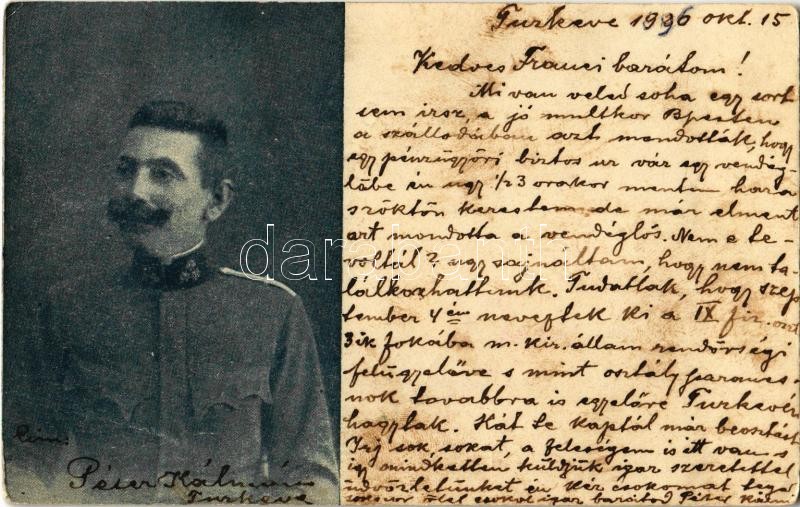 Turkeve 1926 okt. 15
Kedves Franci barátom!
Mi van veled soha egy sort
sem irsz, a jó multkor Bpesten
a szállodában azt mondották, hogy
egy pénzügyőri biztos ur vár egy vendég-
lőbe én ugy 1/2 3 orakor mentem haza
szöktön kerestem de már elment
azt mondotta a vendéglős. Nem e te
voltál? ugy sajnáltam, hogy nem ta-
lálkozhattunk. Tudatlak, hogy szep
tember 4 én neveztek ki a IX fiz. oszt
3ik fokába m. kir. állam rendőrségi
felügyelőve s mint osztály parancs-
nok továbbra is egyelőre Turkevén
hagytak. Hát te kaptál már beosztást
Irj sok, sokat, a feleségem is itt van s
igy mindketten küldjük igaz szeretettel
üdvözletünket én kéz csokomat
csokol igaz barátod Péter Kálm
Cim:
Péter Kálmán
Turkeve
darabanth